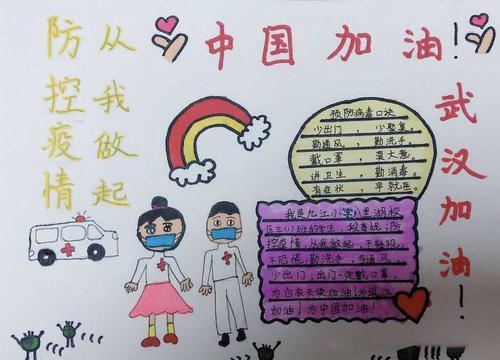 防控疫情
从我做起
中国加油!
武汉加油!
预防病毒口诀
少出门，少聚集。
勤通风，勤洗手。
戴口罩，莫大意。
讲卫生，勤消毒。
有症状，早就医。
我是九江小学八里湖校
区三(1)班的学生 防
控疫情，从我做起，不轻视，
不恐慌，勤洗手，多通风，
少出门，出门一定戴口罩
为白衣天使加油，为武汉
加油！为中国加油！